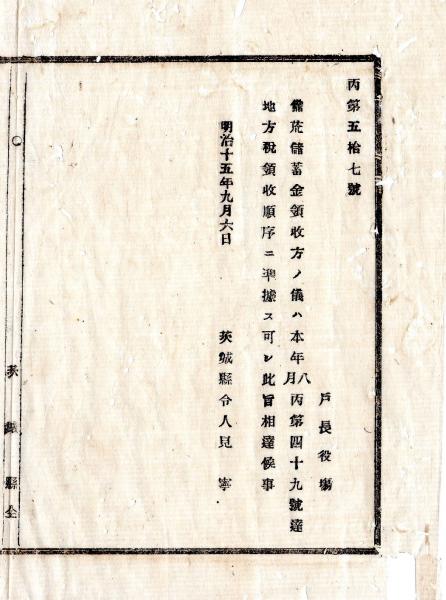 丙第五拾七號
戸長役場
備荒儲蓄金領收方ノ儀ハ本年八月丙第四十九號達
地方税領收順序ニ準據ス可シ此旨相達候事
明治十五年九月六日
茨城縣令人見寧
茨城縣令